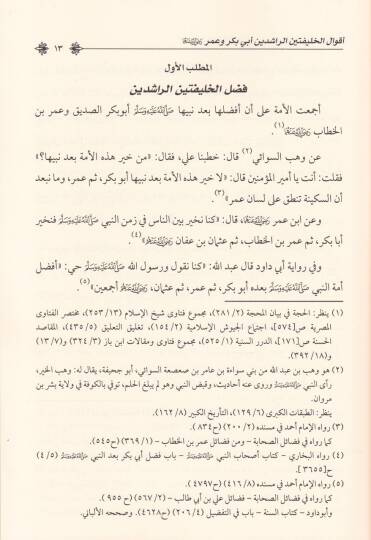 أقوال الخليفتين الراشدين أبي بكر وعمر رضي الله عنهما
١٣
المطلب الأول
فضل الخليفتين الراشدين
أجمعت الأمة على أن أفضلها بعد نبيها صلى الله عليه وسلم أبوبكر الصديق وعمر بن
الخطاب رضي الله عنهما(١).
عن وهب السوائي(٢) قال: خطبنا علي، فقال: «من خير هذه الأمة بعد نبيها؟»
فقلت: أنت يا أمير المؤمنين قال: «لا خير هذه الأمة بعد نبيها أبو بكر، ثم عمر، وما نبعد
أن السكينة تنطق على لسان عمر»(٣).
وعن ابن عمر رضي الله عنهما، قال: «كنا نخير بين الناس في زمن النبي صلى الله عليه وسلم فنخير
أبا بكر، ثم عمر بن الخطاب، ثم عثمان بن عفان رضي الله عنهم»(٤).
وفي رواية أبي داود قال عبد الله: «كنا نقول ورسول الله صلى الله عليه وسلم حي: «أفضل
أمة النبي صلى الله عليه وسلم بعده أبو بكر، ثم عمر، ثم عثمان، رضي الله عنهم أجمعين»(٥).
(١) ينظر: الحجة في بيان المحجة (٢/ ٢٨١)، مجموع فتاوى شيخ الإسلام (١٣/ ٢٥٣)، مختصر الفتاوى
المصرية ص[٥٧٤]، اجتماع الجيوش الإسلامية (٢/ ١٥٤)، تغليق التعليق (٥/ ٤٣٥)، المقاصد
الحسنة ص[١٧١]، الدرر السنية (١/ ٥٢٥)، مجموع فتاوى ومقالات ابن باز (٣/ ٣٢٤) و(٧/ ١٣)
و(١٨/ ٣٩٢).
(٢) هو وهب بن عبد الله من بني سواءة بن عامر بن صعصعة السوائي، أبو جحيفة، يقال له: وهب الخير،
رأى النبي صلى الله عليه وسلم وروى عنه أحاديث، وقبض النبي وهو لم يبلغ الحلم، توفي بالكوفة في ولاية بشر بن
مروان.
ينظر: الطبقات الكبرى (٦/ ١٢٩)، التأريخ الكبير (٨/ ١٦٢).
(٣) رواه الإمام أحمد في مسنده (٢/ ٢٠٠) (ح٨٣٤).
كما رواه في فضائل الصحابة – ومن فضائل عمر بن الخطاب – (١/ ٣٦٩) (ح٥٤٥).
(٤) رواه البخاري – كتاب أصحاب النبي – باب فضل أبي بكر بعد النبي صلى الله عليه وسلم (٤/٥)
ح[٣٦٥٥].
(٥) رواه الإمام أحمد في مسنده (٨/ ٤١٦) (ح٤٧٩٧).
كما رواه في فضائل الصحابة – فضائل علي بن أبي طالب – (٢/ ٥٦٧) (ح ٩٥٥).
وأبوداود – كتاب السنة – باب في التفضيل (٤/ ٢٠٦) (ح٤٦٢٨). وصححه الألباني.